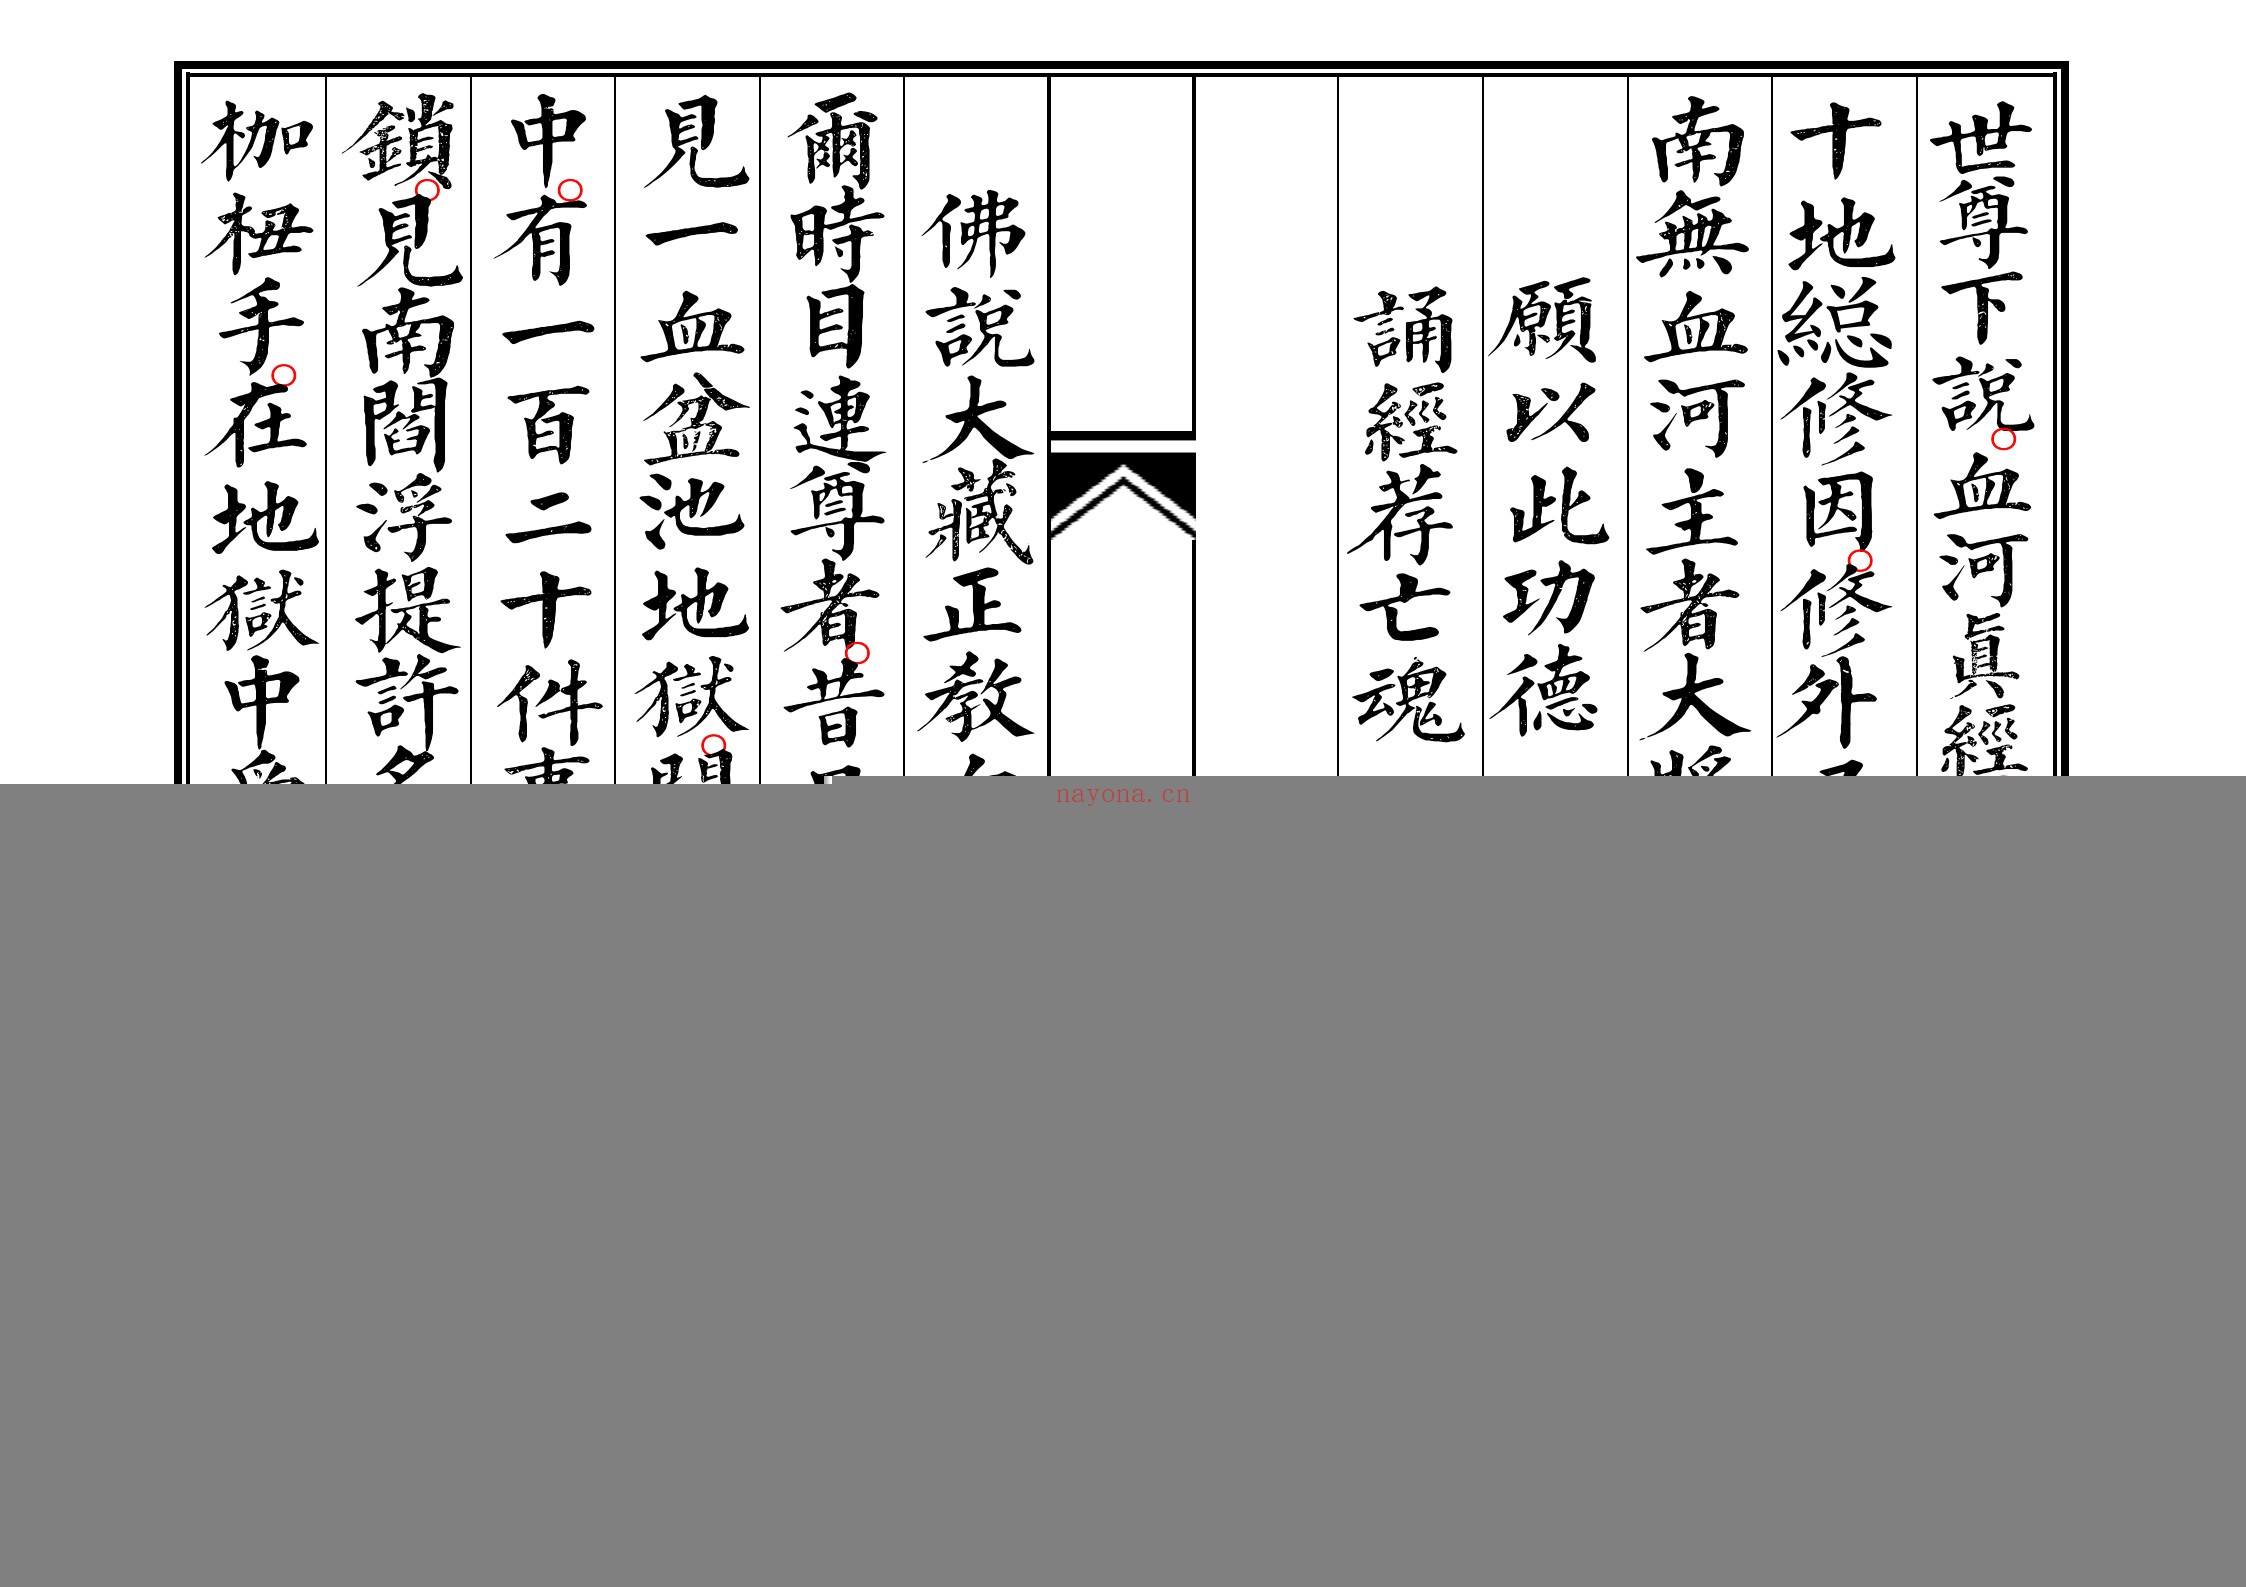 世尊下說○血河眞經
十地総修因○修外
南無血河主者大將
願以此功德
誦經荐亡魂
佛說大藏正教
爾時目連尊者○昔
見一血盆池地獄○
中○有一百二十件
鎖○見南閻浮提許
枷杻手○在地獄中
nayona.cn